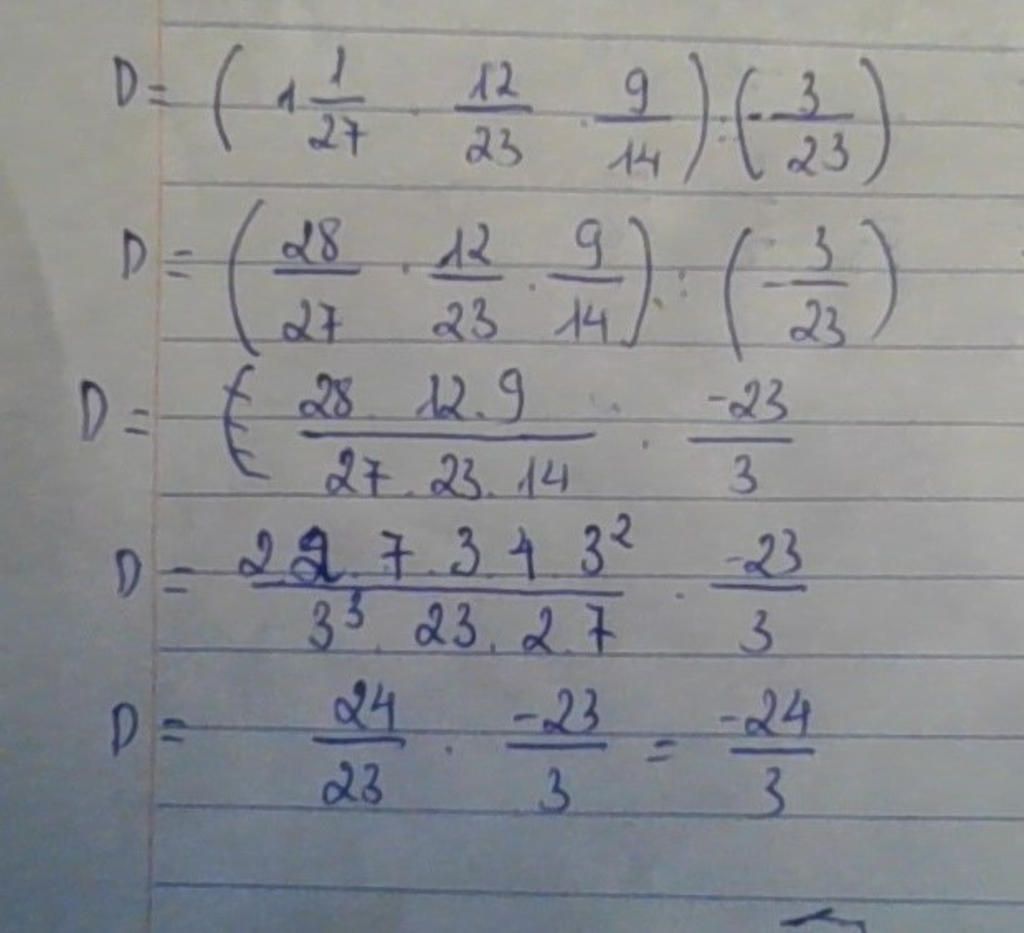 D = ( 1 1/27 · 12/23 · 9/14 ) : ( - 3/23 )
D = ( 28/27 · 12/23 · 9/14 ) : ( - 3/23 )
D = ( 28 . 12 . 9 / 27 . 23 . 14 · -23/3
D = 2 2 . 7 . 3 . 4 . 3² / 3³ . 23 . 2 . 7 · -23/3
D = 24/23 · -23/3 = -24/3